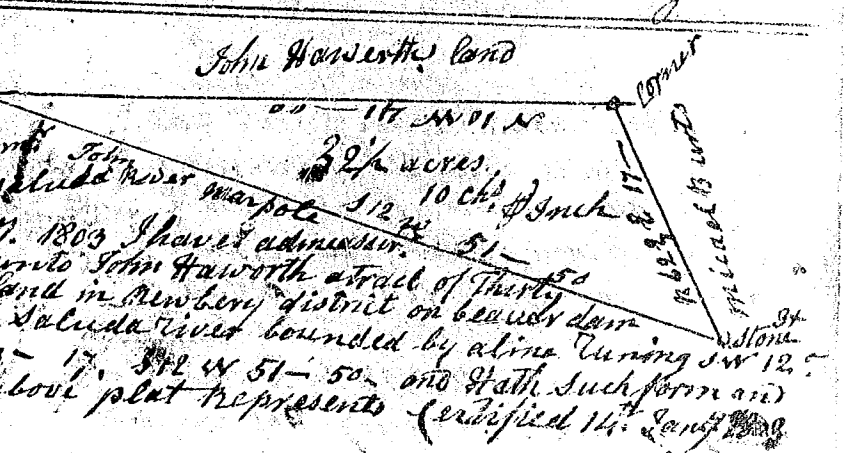 John Haworth land
Corner
00 — 17 N 10 W
32½ acres
10 chs. ⅌ Inch
John
Saluda River marpole S 12 W 51 — 50
17 —
Micael Burts
Stone
1803 I have admeasur.
unto John Haworth a tract of Thirty
land in Newbery district on beaver dam
Saluda River bounded by a line Runing SW 12
17 S 12 W 51 — 50 and Hath such form and
above plat Represents Certified 14th Jany